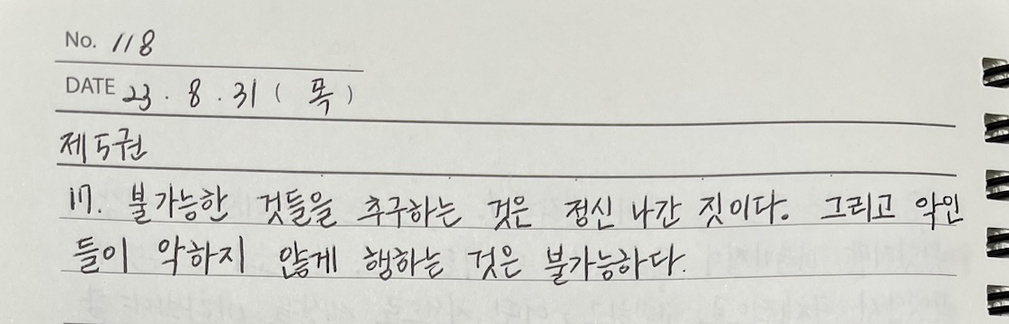 No. 118
DATE 23. 8. 31 ( 목 )
제 5권
17. 불가능한 것들을 추구하는 것은 정신 나간 짓이다. 그리고 악인
들이 악하지 않게 행하는 것은 불가능하다.